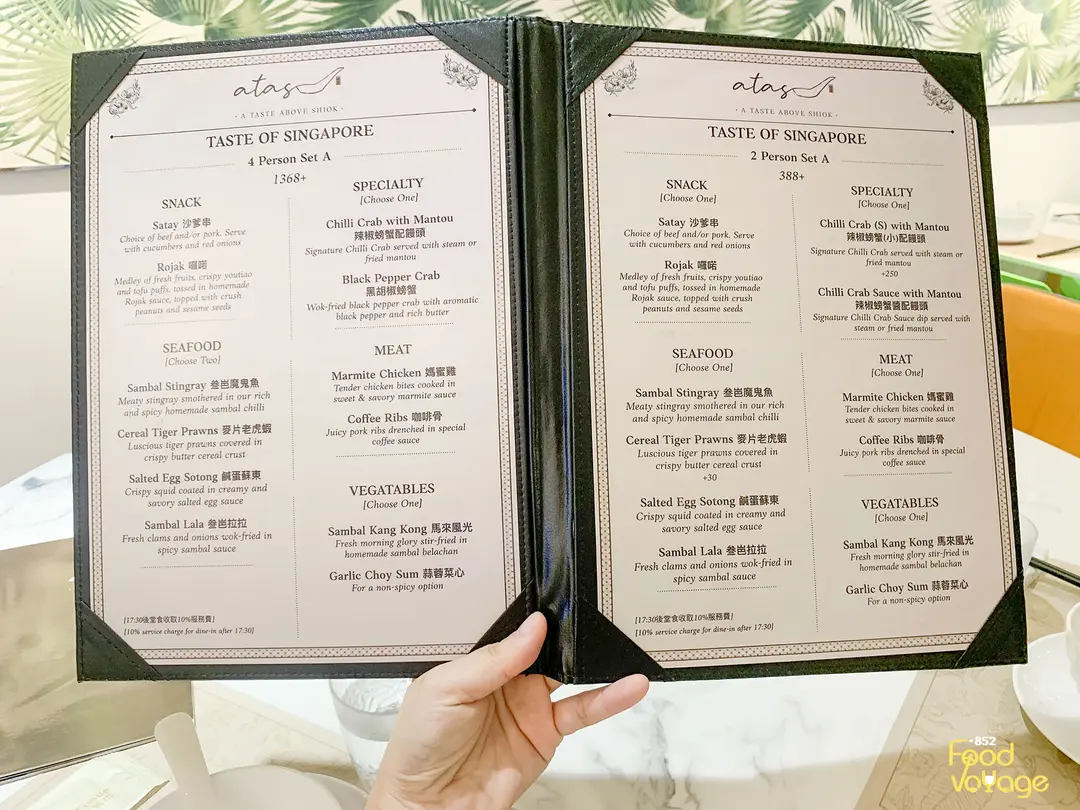 atas
· A TASTE ABOVE SHIOK ·
TASTE OF SINGAPORE
4 Person Set A
1368+
SNACK
Satay 沙爹串
Choice of beef and/or pork. Serve
with cucumbers and red onions
Rojak 囉喏
Medley of fresh fruits, crispy youtiao
and tofu puffs, tossed in homemade
Rojak sauce, topped with crush
peanuts and sesame seeds
SEAFOOD
[Choose Two]
Sambal Stingray 叁岜魔鬼魚
Meaty stingray smothered in our rich
and spicy homemade sambal chilli
Cereal Tiger Prawns 麥片老虎蝦
Luscious tiger prawns covered in
crispy butter cereal crust
Salted Egg Sotong 鹹蛋蘇東
Crispy squid coated in creamy and
savory salted egg sauce
Sambal Lala 叁岜拉拉
Fresh clams and onions wok-fried in
spicy sambal sauce
[17:30後堂食收取10%服務費]
[10% service charge for dine-in after 17:30]
SPECIALTY
[Choose One]
Chilli Crab with Mantou
辣椒螃蟹配饅頭
Signature Chilli Crab served with steam or
fried mantou
Black Pepper Crab
黑胡椒螃蟹
Wok-fried black pepper crab with aromatic
black pepper and rich butter
MEAT
Marmite Chicken 媽蜜雞
Tender chicken bites cooked in
sweet & savory marmite sauce
Coffee Ribs 咖啡骨
Juicy pork ribs drenched in special
coffee sauce
VEGATABLES
[Choose One]
Sambal Kang Kong 馬來風光
Fresh morning glory stir-fried in
homemade sambal belachan
Garlic Choy Sum 蒜蓉菜心
For a non-spicy option
atas
· A TASTE ABOVE SHIOK ·
TASTE OF SINGAPORE
2 Person Set A
388+
SNACK
[Choose One]
Satay 沙爹串
Choice of beef and/or pork. Serve
with cucumbers and red onions
Rojak 囉喏
Medley of fresh fruits, crispy youtiao
and tofu puffs, tossed in homemade
Rojak sauce, topped with crush
peanuts and sesame seeds
SEAFOOD
[Choose One]
Sambal Stingray 叁岜魔鬼魚
Meaty stingray smothered in our rich
and spicy homemade sambal chilli
Cereal Tiger Prawns 麥片老虎蝦
Luscious tiger prawns covered in
crispy butter cereal crust
+30
Salted Egg Sotong 鹹蛋蘇東
Crispy squid coated in creamy and
savory salted egg sauce
Sambal Lala 叁岜拉拉
Fresh clams and onions wok-fried in
spicy sambal sauce
[17:30後堂食收取10%服務費]
[10% service charge for dine-in after 17:30]
SPECIALTY
[Choose One]
Chilli Crab (S) with Mantou
辣椒螃蟹(小)配饅頭
Signature Chilli Crab served with steam or
fried mantou
+250
Chilli Crab Sauce with Mantou
辣椒螃蟹醬配饅頭
Signature Chilli Crab Sauce dip served with
steam or fried mantou
MEAT
[Choose One]
Marmite Chicken 媽蜜雞
Tender chicken bites cooked in
sweet & savory marmite sauce
Coffee Ribs 咖啡骨
Juicy pork ribs drenched in special
coffee sauce
VEGATABLES
[Choose One]
Sambal Kang Kong 馬來風光
Fresh morning glory stir-fried in
homemade sambal belachan
Garlic Choy Sum 蒜蓉菜心
For a non-spicy option
+852
Food
Voyage